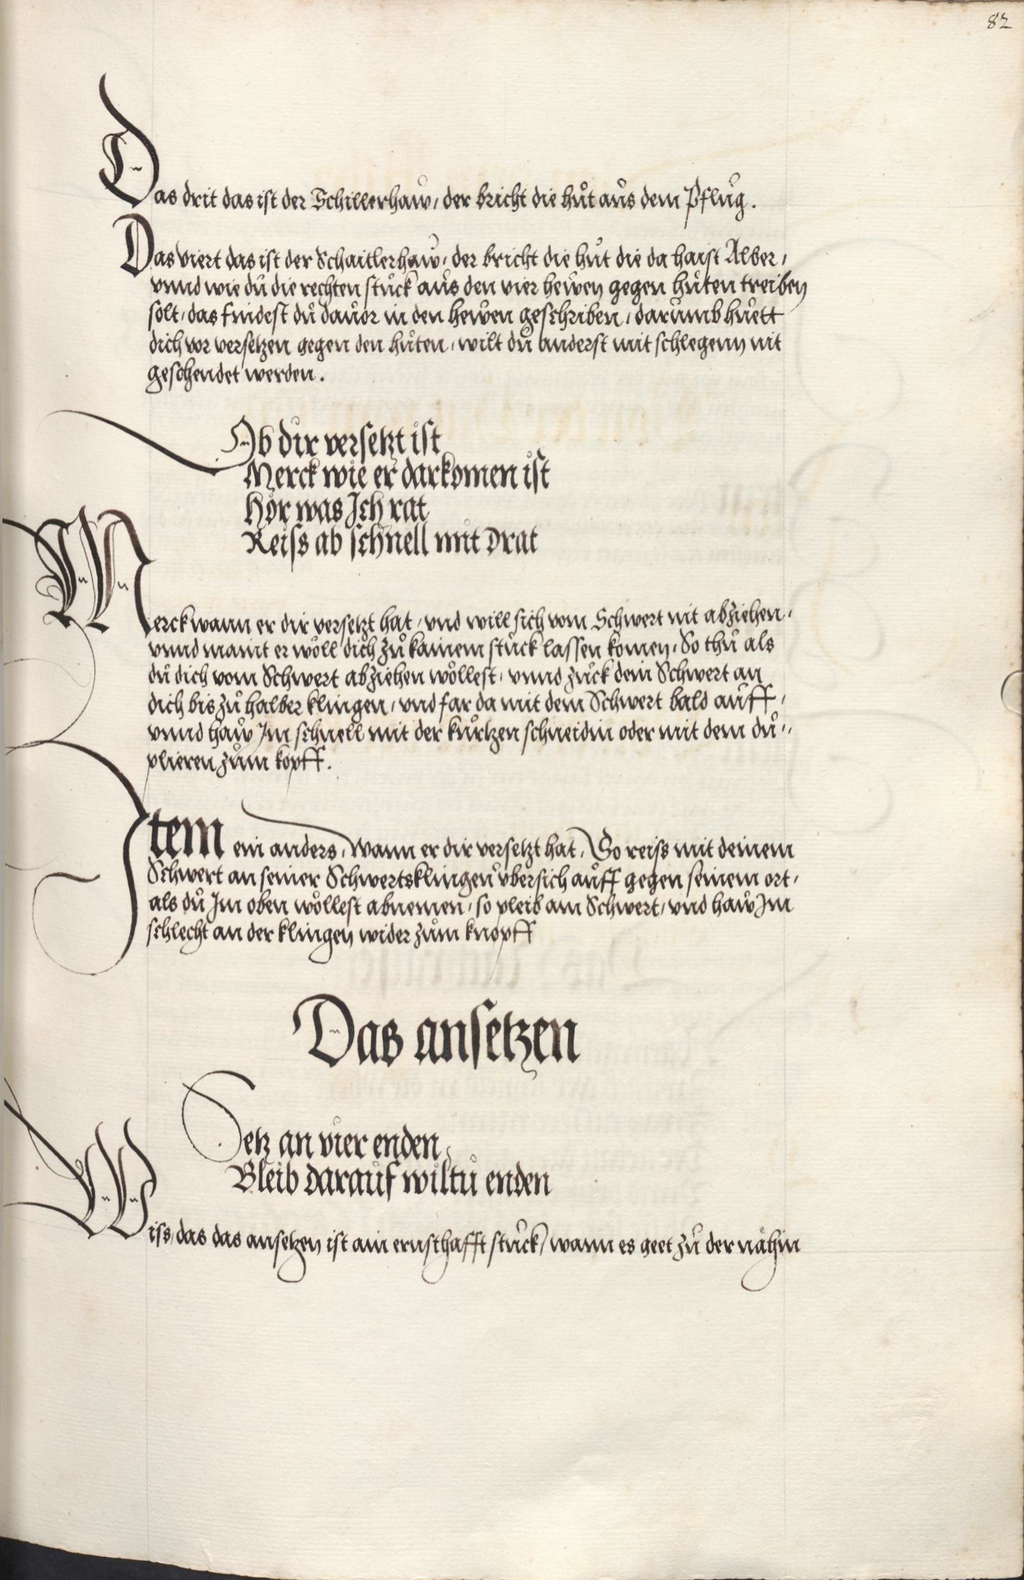 82
Das drit das ist der Schillerhaw, der bricht die hůt aus dem Pflug.
Das viert das ist der Schaitlerhaw, der bricht die hůt die da haist Alber,
vnnd wie du die rechten stuck aus den vier hewen gegen hůten treiben
solt, das findest du dauor in den hewen geschriben, darumb huett
dich vor versetzen gegen den hůten, wilt du anderst mit schlegenn nit
geschendet werden.
Ob dir versetzt ist
Merck wie er darkomen ist
Hör was Ich rat
Reiss ab schnell mit drat
Merck wann er dir versetzt hat, vnd will sich vom Schwert nit abziehen,
vnnd maint er wöll dich zů kainem stuck lassen komen, So thů als
du dich vom Schwert abziehen wöllest, vnnd zuck dein Schwert an
dich bis zů halber klingen, vnd far da mit dem Schwert bald auff,
vnnd haw Im schnell mit der kurtzen schneidin oder mit dem du„
plieren zum kopff.
Item ein anders, Wann er dir versetzt hat, So reiss mit deinem
Schwert an seiner Schwertsklingen vbersich auff gegen seinem ort,
als du Im oben wöllest abnemen, so pleib am Schwert, vnd haw Im
schlecht an der klingen wider zum knopff
Das ansetzen
Setz an vier enden,
Bleib darauf wiltu enden
Wiss, das das ansetzen ist ain ernsthafft stuck, wann es geet zů der nähin